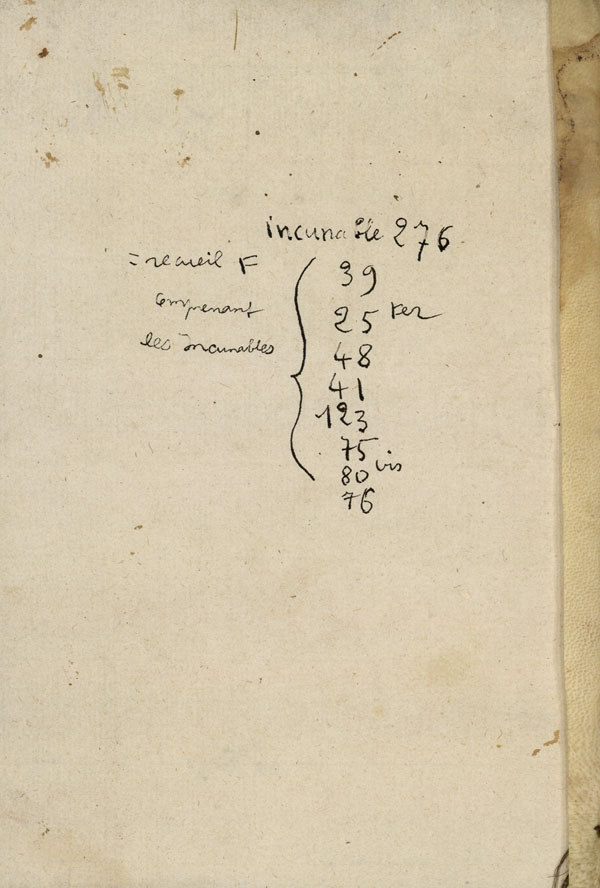 incunable 276
= recueil F
comprenant
les incunables
39
25 ter
48
41
123
75
80 bis
76